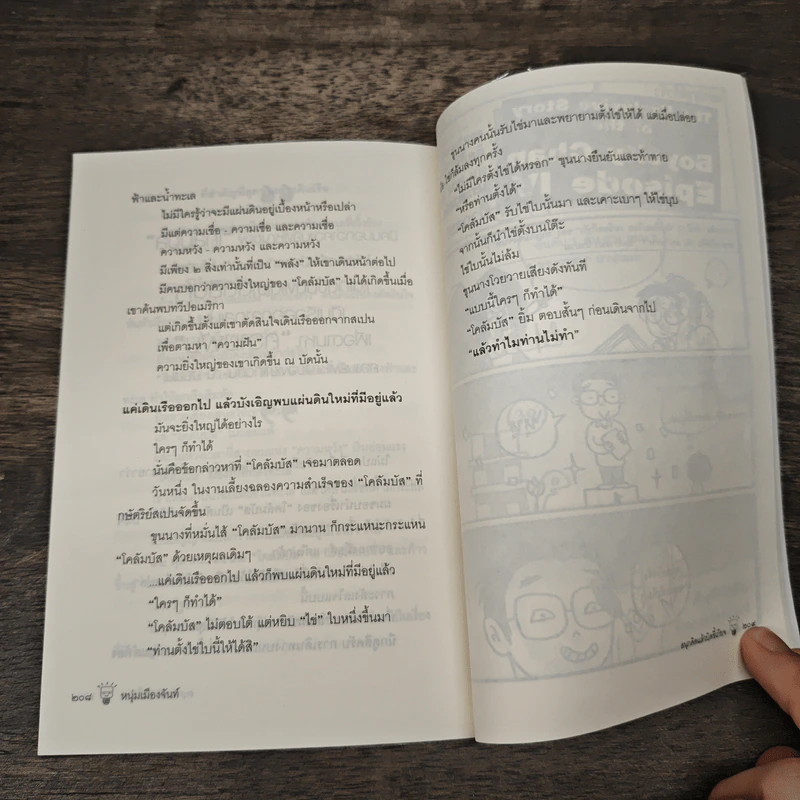 ฟ้าและน้ำทะเล
ไม่มีใครรู้ว่าจะมีแผ่นดินอยู่เบื้องหน้าหรือเปล่า
มีแต่ความเชื่อ - ความเชื่อ และความเชื่อ
ความหวัง - ความหวัง และความหวัง
มีเพียง ๒ สิ่งเท่านั้นที่เป็น “พลัง” ให้เขาเดินหน้าต่อไป
มีคนบอกว่าความยิ่งใหญ่ของ “โคลัมบัส” ไม่ได้เกิดขึ้นเมื่อ
เขาค้นพบทวีปอเมริกา
แต่เกิดขึ้นตั้งแต่เขาตัดสินใจเดินเรือออกจากสเปน
เพื่อตามหา “ความฝัน”
ความยิ่งใหญ่ของเขาเกิดขึ้น ณ บัดนั้น
แค่เดินเรือออกไป แล้วบังเอิญพบแผ่นดินใหม่ที่มีอยู่แล้ว
มันจะยิ่งใหญ่ได้อย่างไร
ใครๆ ก็ทำได้
นั่นคือข้อกล่าวหาที่ “โคลัมบัส” เจอมาตลอด
วันหนึ่ง ในงานเลี้ยงฉลองความสำเร็จของ “โคลัมบัส” ที่
กษัตริย์สเปนจัดขึ้น
ขุนนางที่หมั่นไส้ “โคลัมบัส” มานาน ก็กระแหนะกระแหน
“โคลัมบัส” ด้วยเหตุผลเดิมๆ
...แค่เดินเรือออกไป แล้วก็พบแผ่นดินใหม่ที่มีอยู่แล้ว
“ใครๆ ก็ทำได้”
“โคลัมบัส” ไม่ตอบโต้ แต่หยิบ “ไข่” ใบหนึ่งขึ้นมา
“ท่านตั้งไข่ใบนี้ให้ได้สิ”
๒๐๘ หนุ่มเมืองจันท์
ขุนนางคนนั้นรับไข่มาและพยายามตั้งไข่ให้ได้ แต่เมื่อปล่อย
ไข่ก็ล้มลงทุกครั้ง
“ไม่มีใครตั้งไข่ได้หรอก” ขุนนางยืนยันและท้าทาย
“หรือท่านตั้งได้”
“โคลัมบัส” รับไข่ใบนั้นมา และเคาะเบาๆ ให้ไข่บุบ
จากนั้นก็นำไข่ตั้งบนโต๊ะ
ไข่ใบนั้นไม่ล้ม
ขุนนางโวยวายเสียงดังทันที
“แบบนี้ใครๆ ก็ทำได้”
“โคลัมบัส” ยิ้ม ตอบสั้นๆ ก่อนเดินจากไป
“แล้วทำไมท่านไม่ทำ”